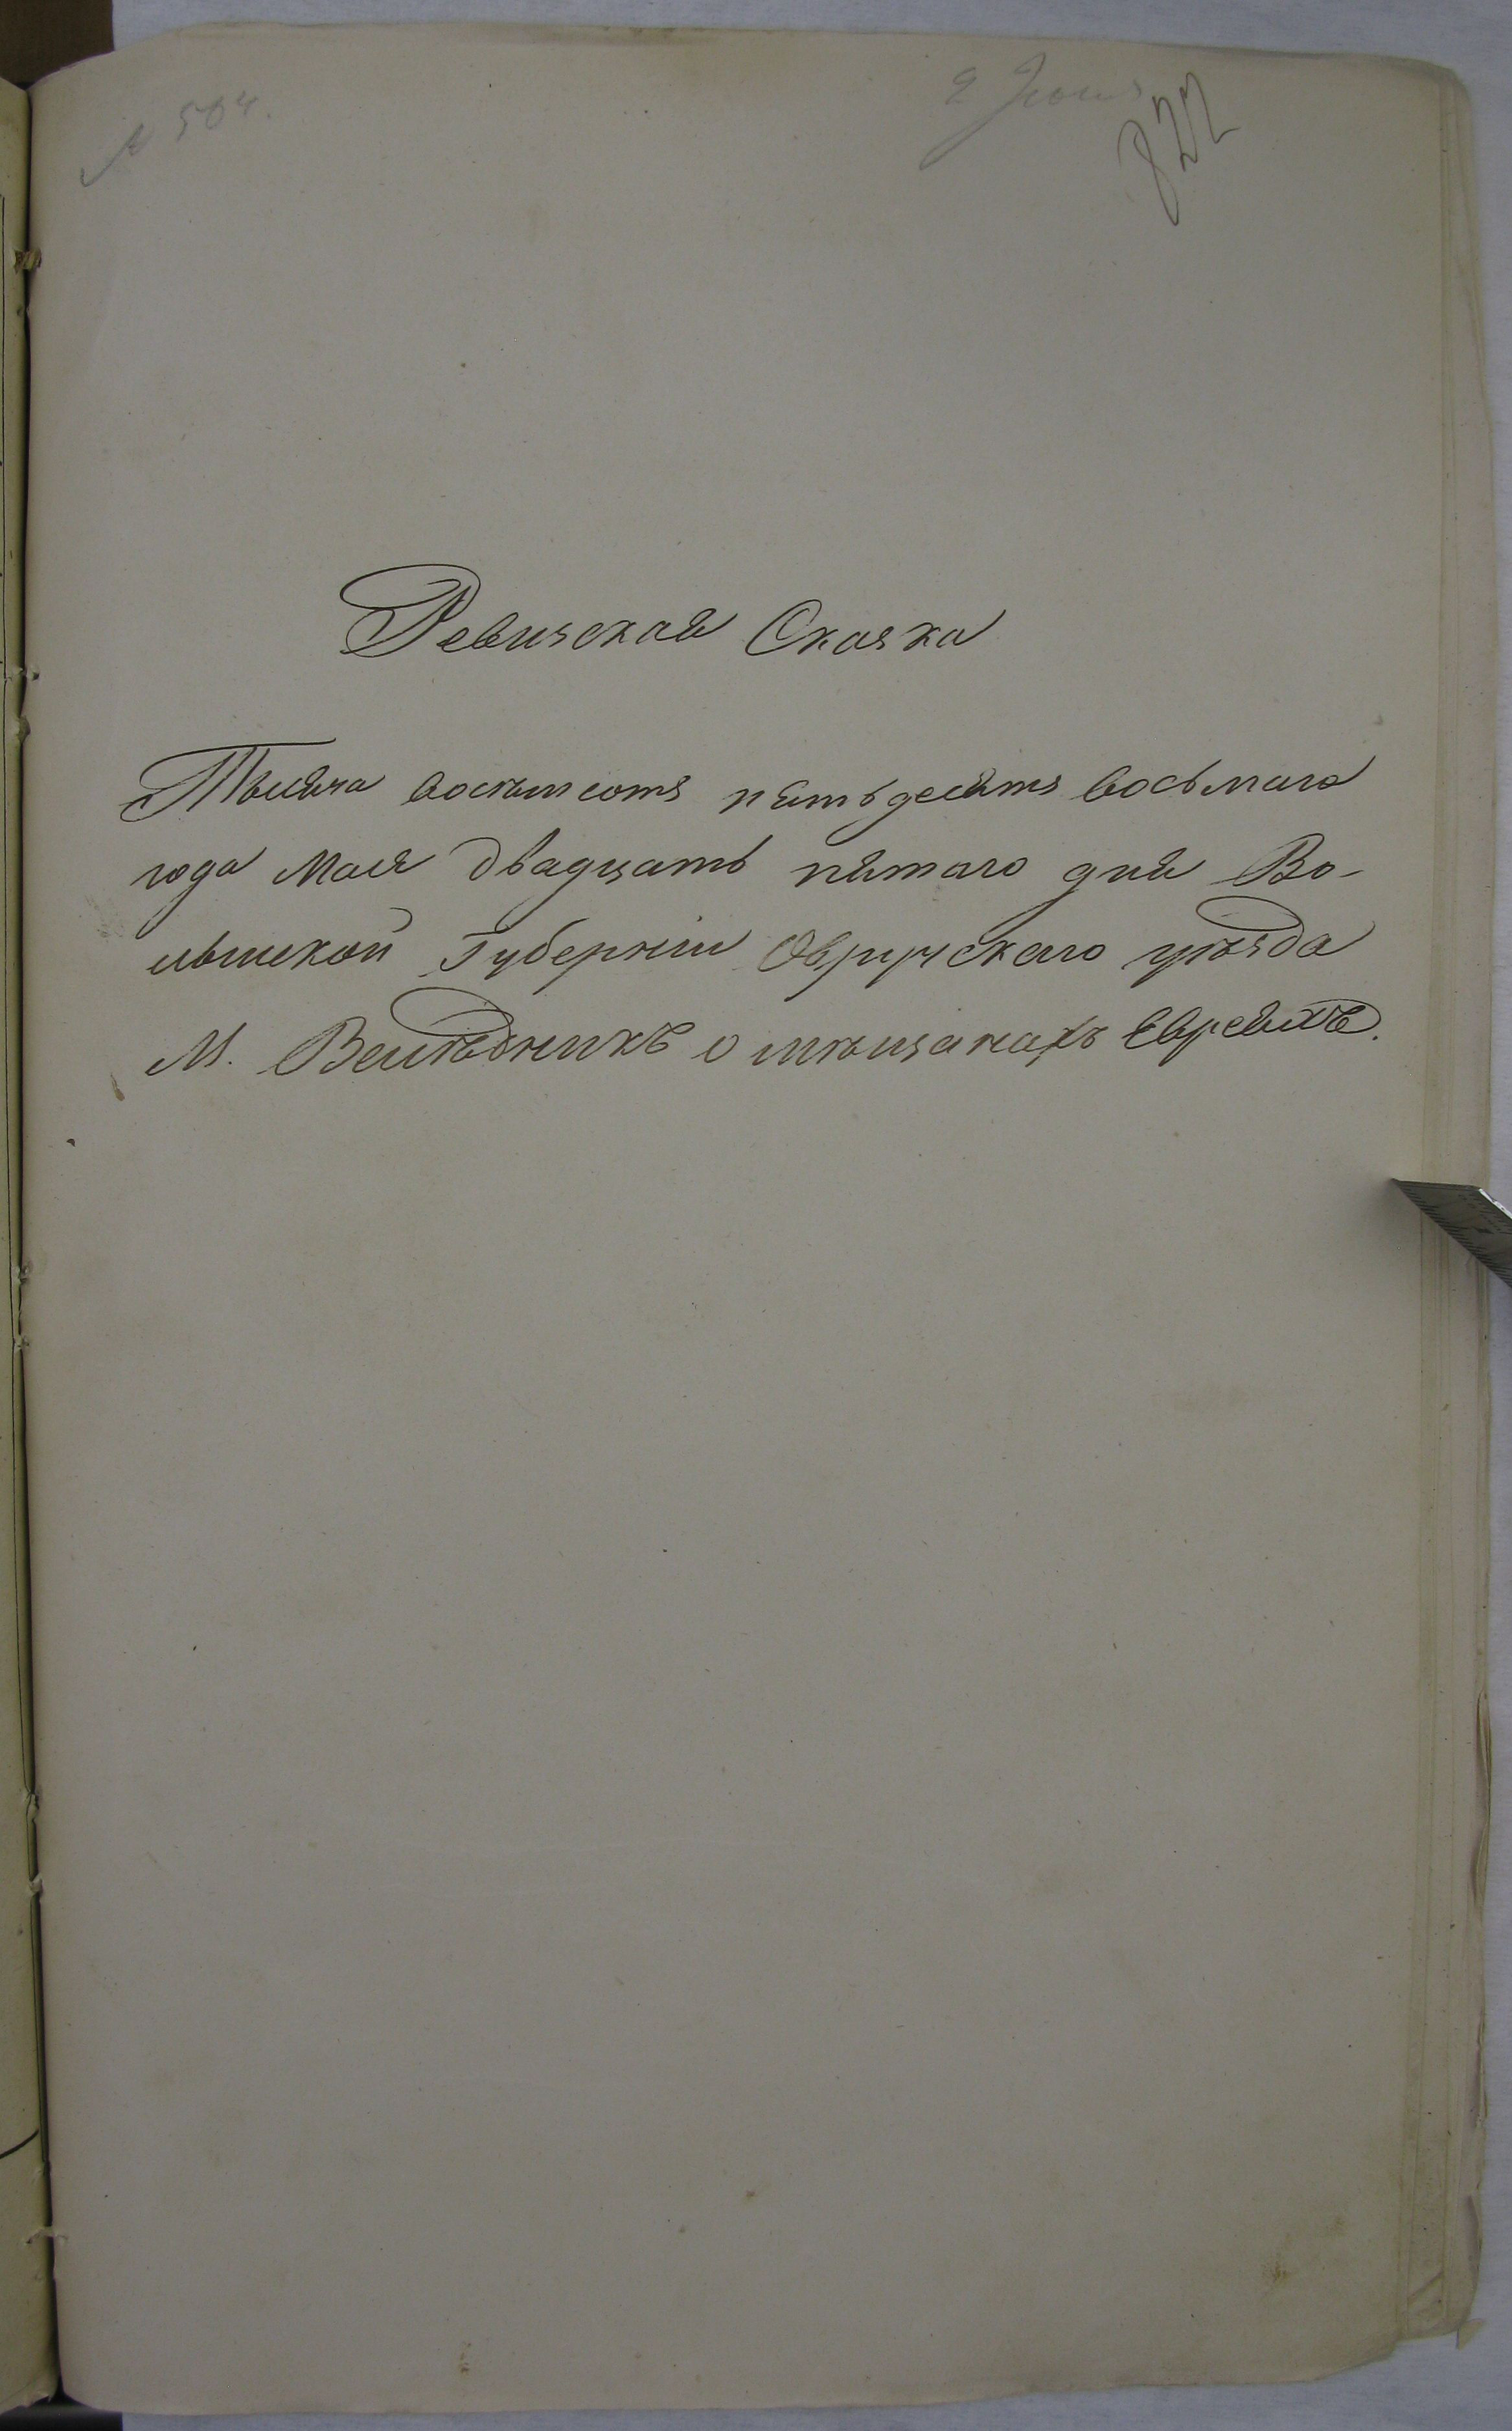 № 504.
2 Июня
822
Ревизская Сказка
Тысяча восемьсотъ пятьдесятъ восьмаго
года Мая двадцать пятаго дня Во-
лынской Губерніи Овручскаго уѣзда
М. Веледникъ о мѣщанахъ Евреяхъ.